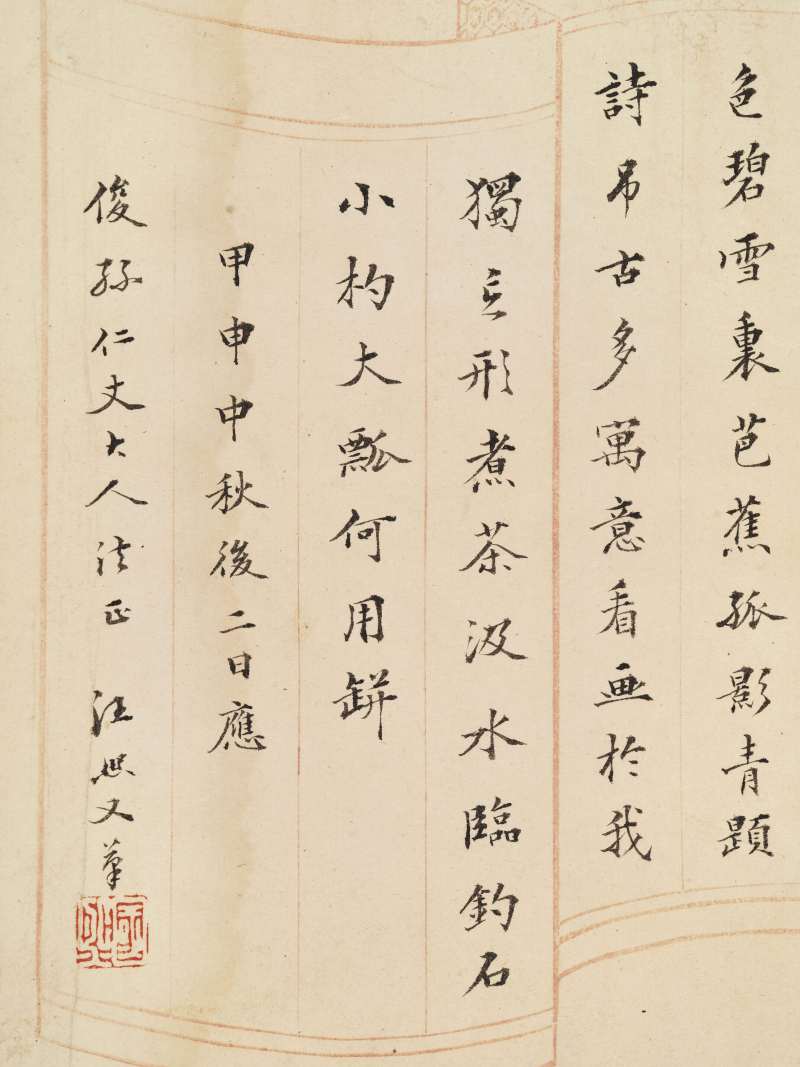 色碧雪裏芭蕉孤影青題
詩吊古多寓意看画於我
獨立形煮茶汲水臨釣石
小杓大瓢何用缾
甲申中秋後二日應
俊孫仁丈大人法正 汪煦文筆